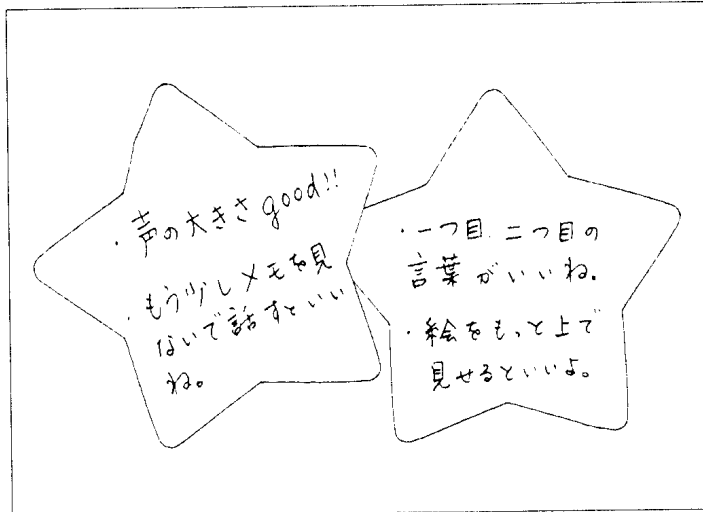 ・声の大きさgood!!
・もう少しメモを見
ないで話すといい
ね。
・一つ目 二つ目の
言葉がいいね.
・絵をもっと上で
見せるといいよ。